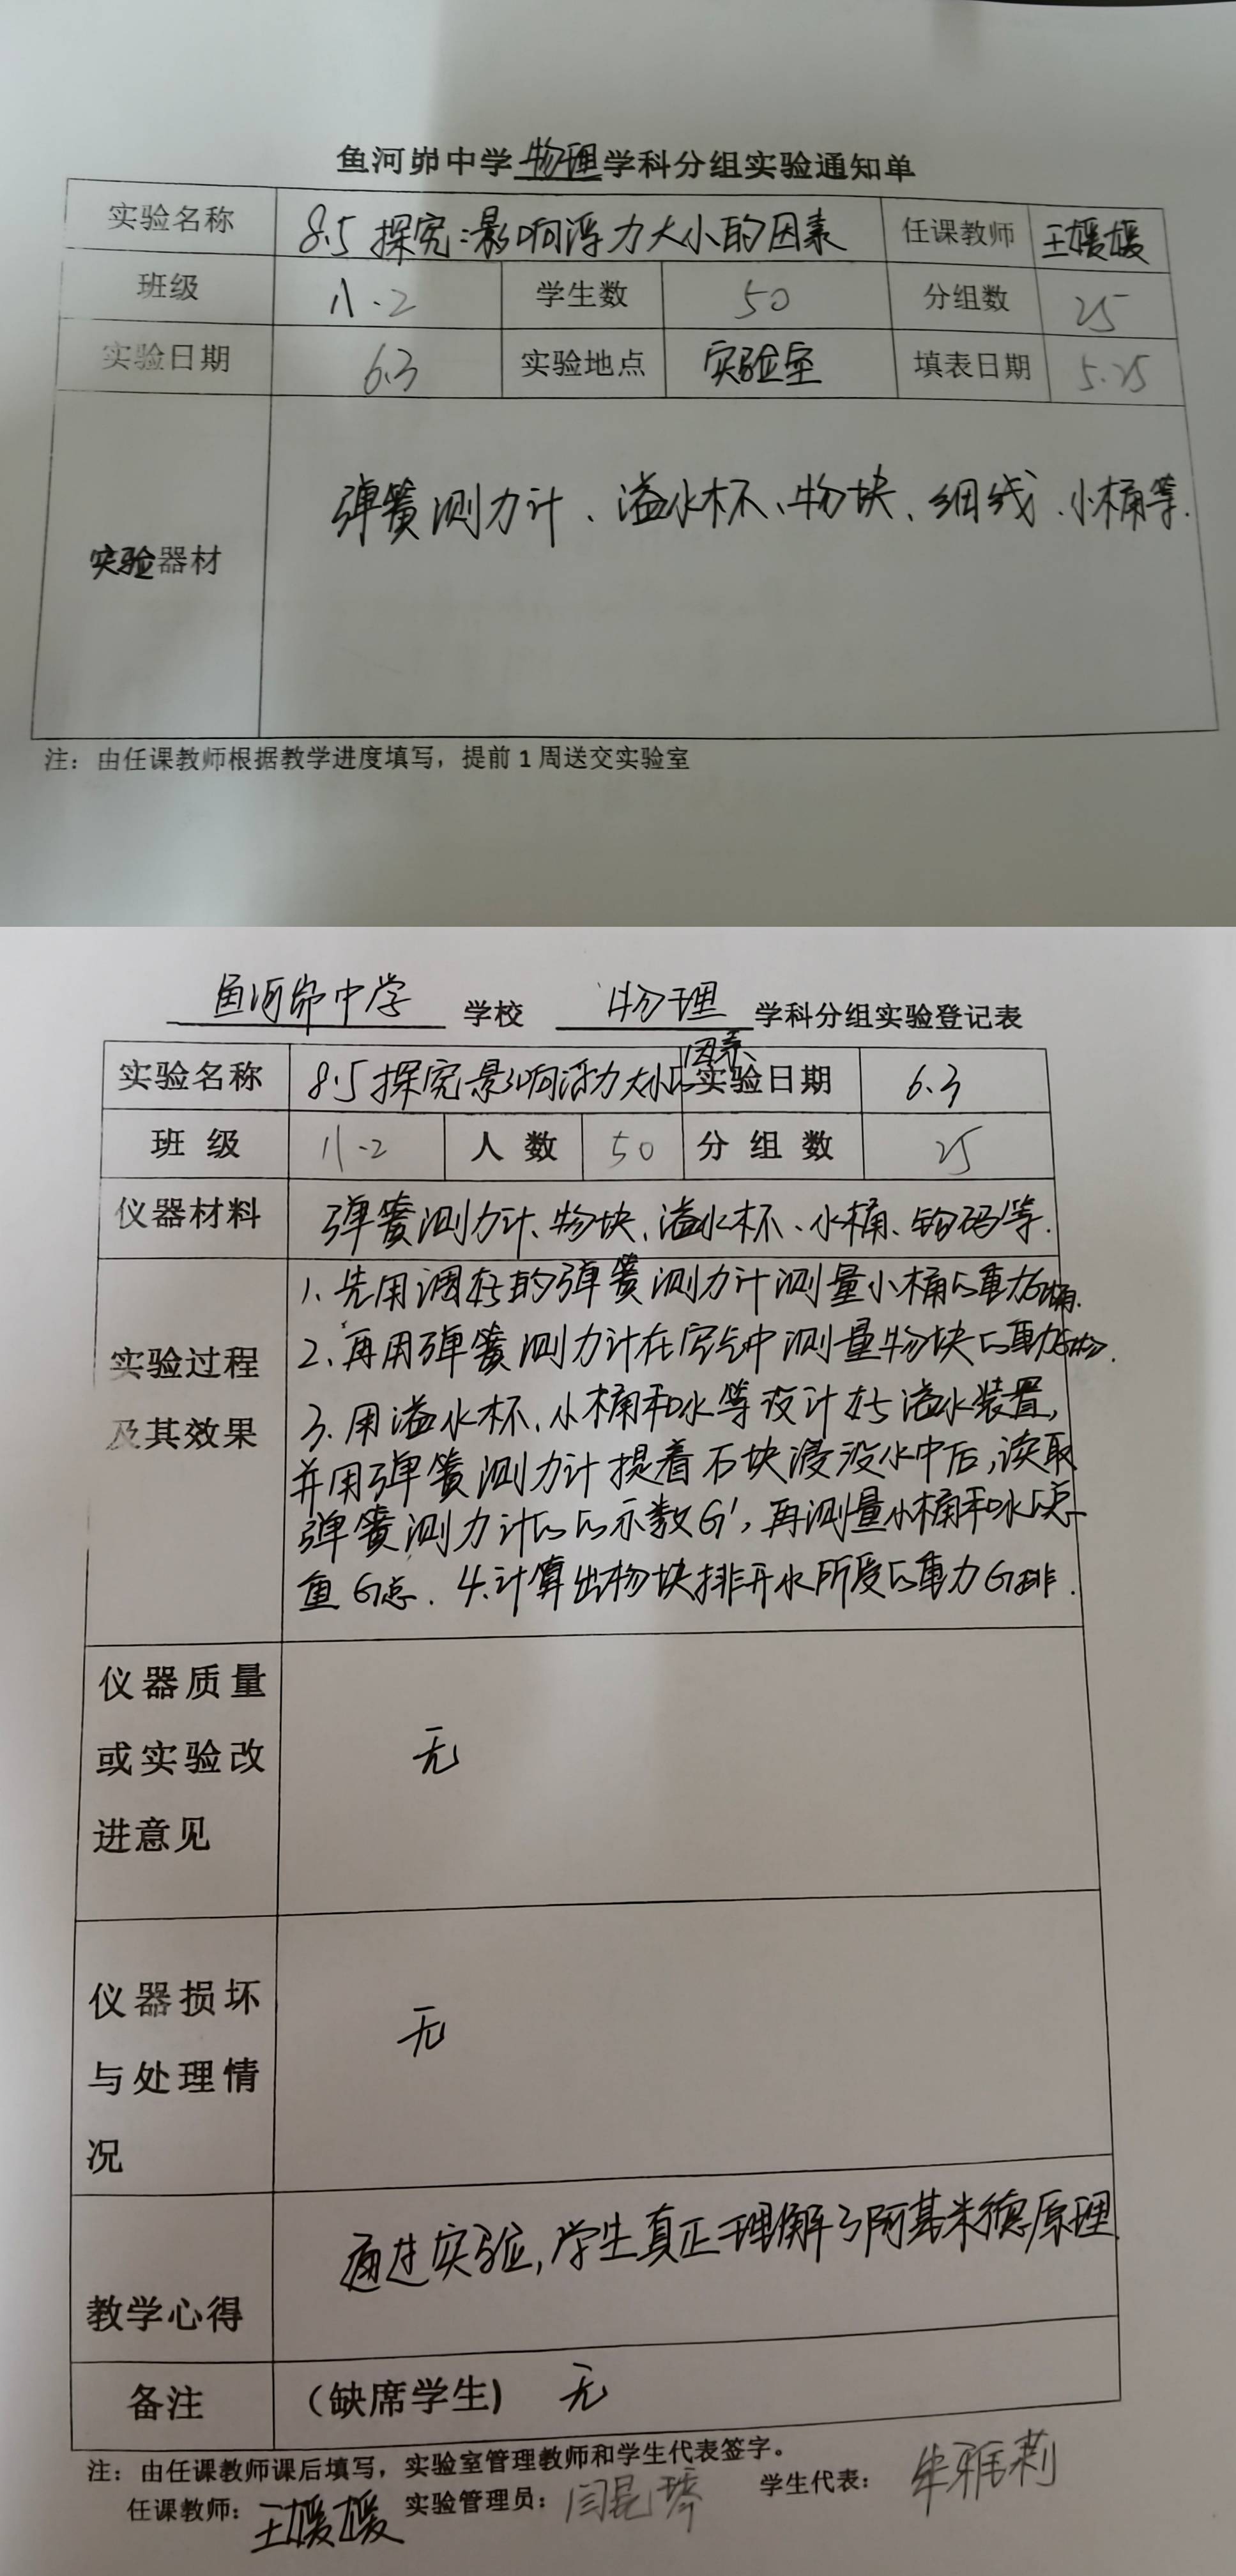 鱼河峁中学物理学科分组实验通知单
实验名称 8.5 探究:影响浮力大小的因素 任课教师 王媛媛
班级 八.2 学生数 50 分组数 25
实验日期 6.3 实验地点 实验室 填表日期 5.25
实验器材 弹簧测力计、溢水杯、物块、细线、小桶等.
注：由任课教师根据教学进度填写，提前1周送交实验室
鱼河峁中学 学校 物理 学科分组实验登记表
实验名称 8.5 探究影响浮力大小的因素 实验日期 6.3
班级 八.2 人数 50 分组数 25
仪器材料 弹簧测力计、物块、溢水杯、小桶、钩码等.
实验过程及其效果
1、先用调好的弹簧测力计测量小桶的重力G桶.
2、再用弹簧测力计在空气中测量物块的重力G物.
3、用溢水杯、小桶和水等设计好溢水装置,
并用弹簧测力计提着石块浸没水中后,读取
弹簧测力计的的示数G',再测量小桶和水的总
重G总. 4.计算出物块排开水所受的重力G排.
仪器质量或实验改进意见 无
仪器损坏与处理情况 无
教学心得 通过实验,学生真正理解了阿基米德原理.
备注 （缺席学生） 无
注：由任课教师课后填写，实验室管理教师和学生代表签字。
任课教师：王媛媛 实验管理员：闫昆琴 学生代表：雅莉